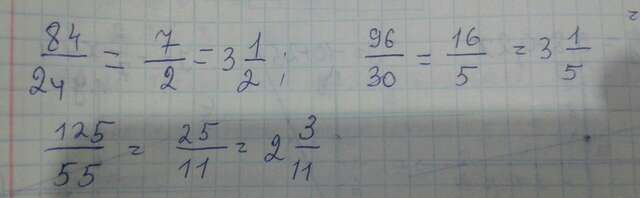 84/24 = 7/2 = 3 1/2 ; 96/30 = 16/5 = 3 1/5 =
125/55 = 25/11 = 2 3/11